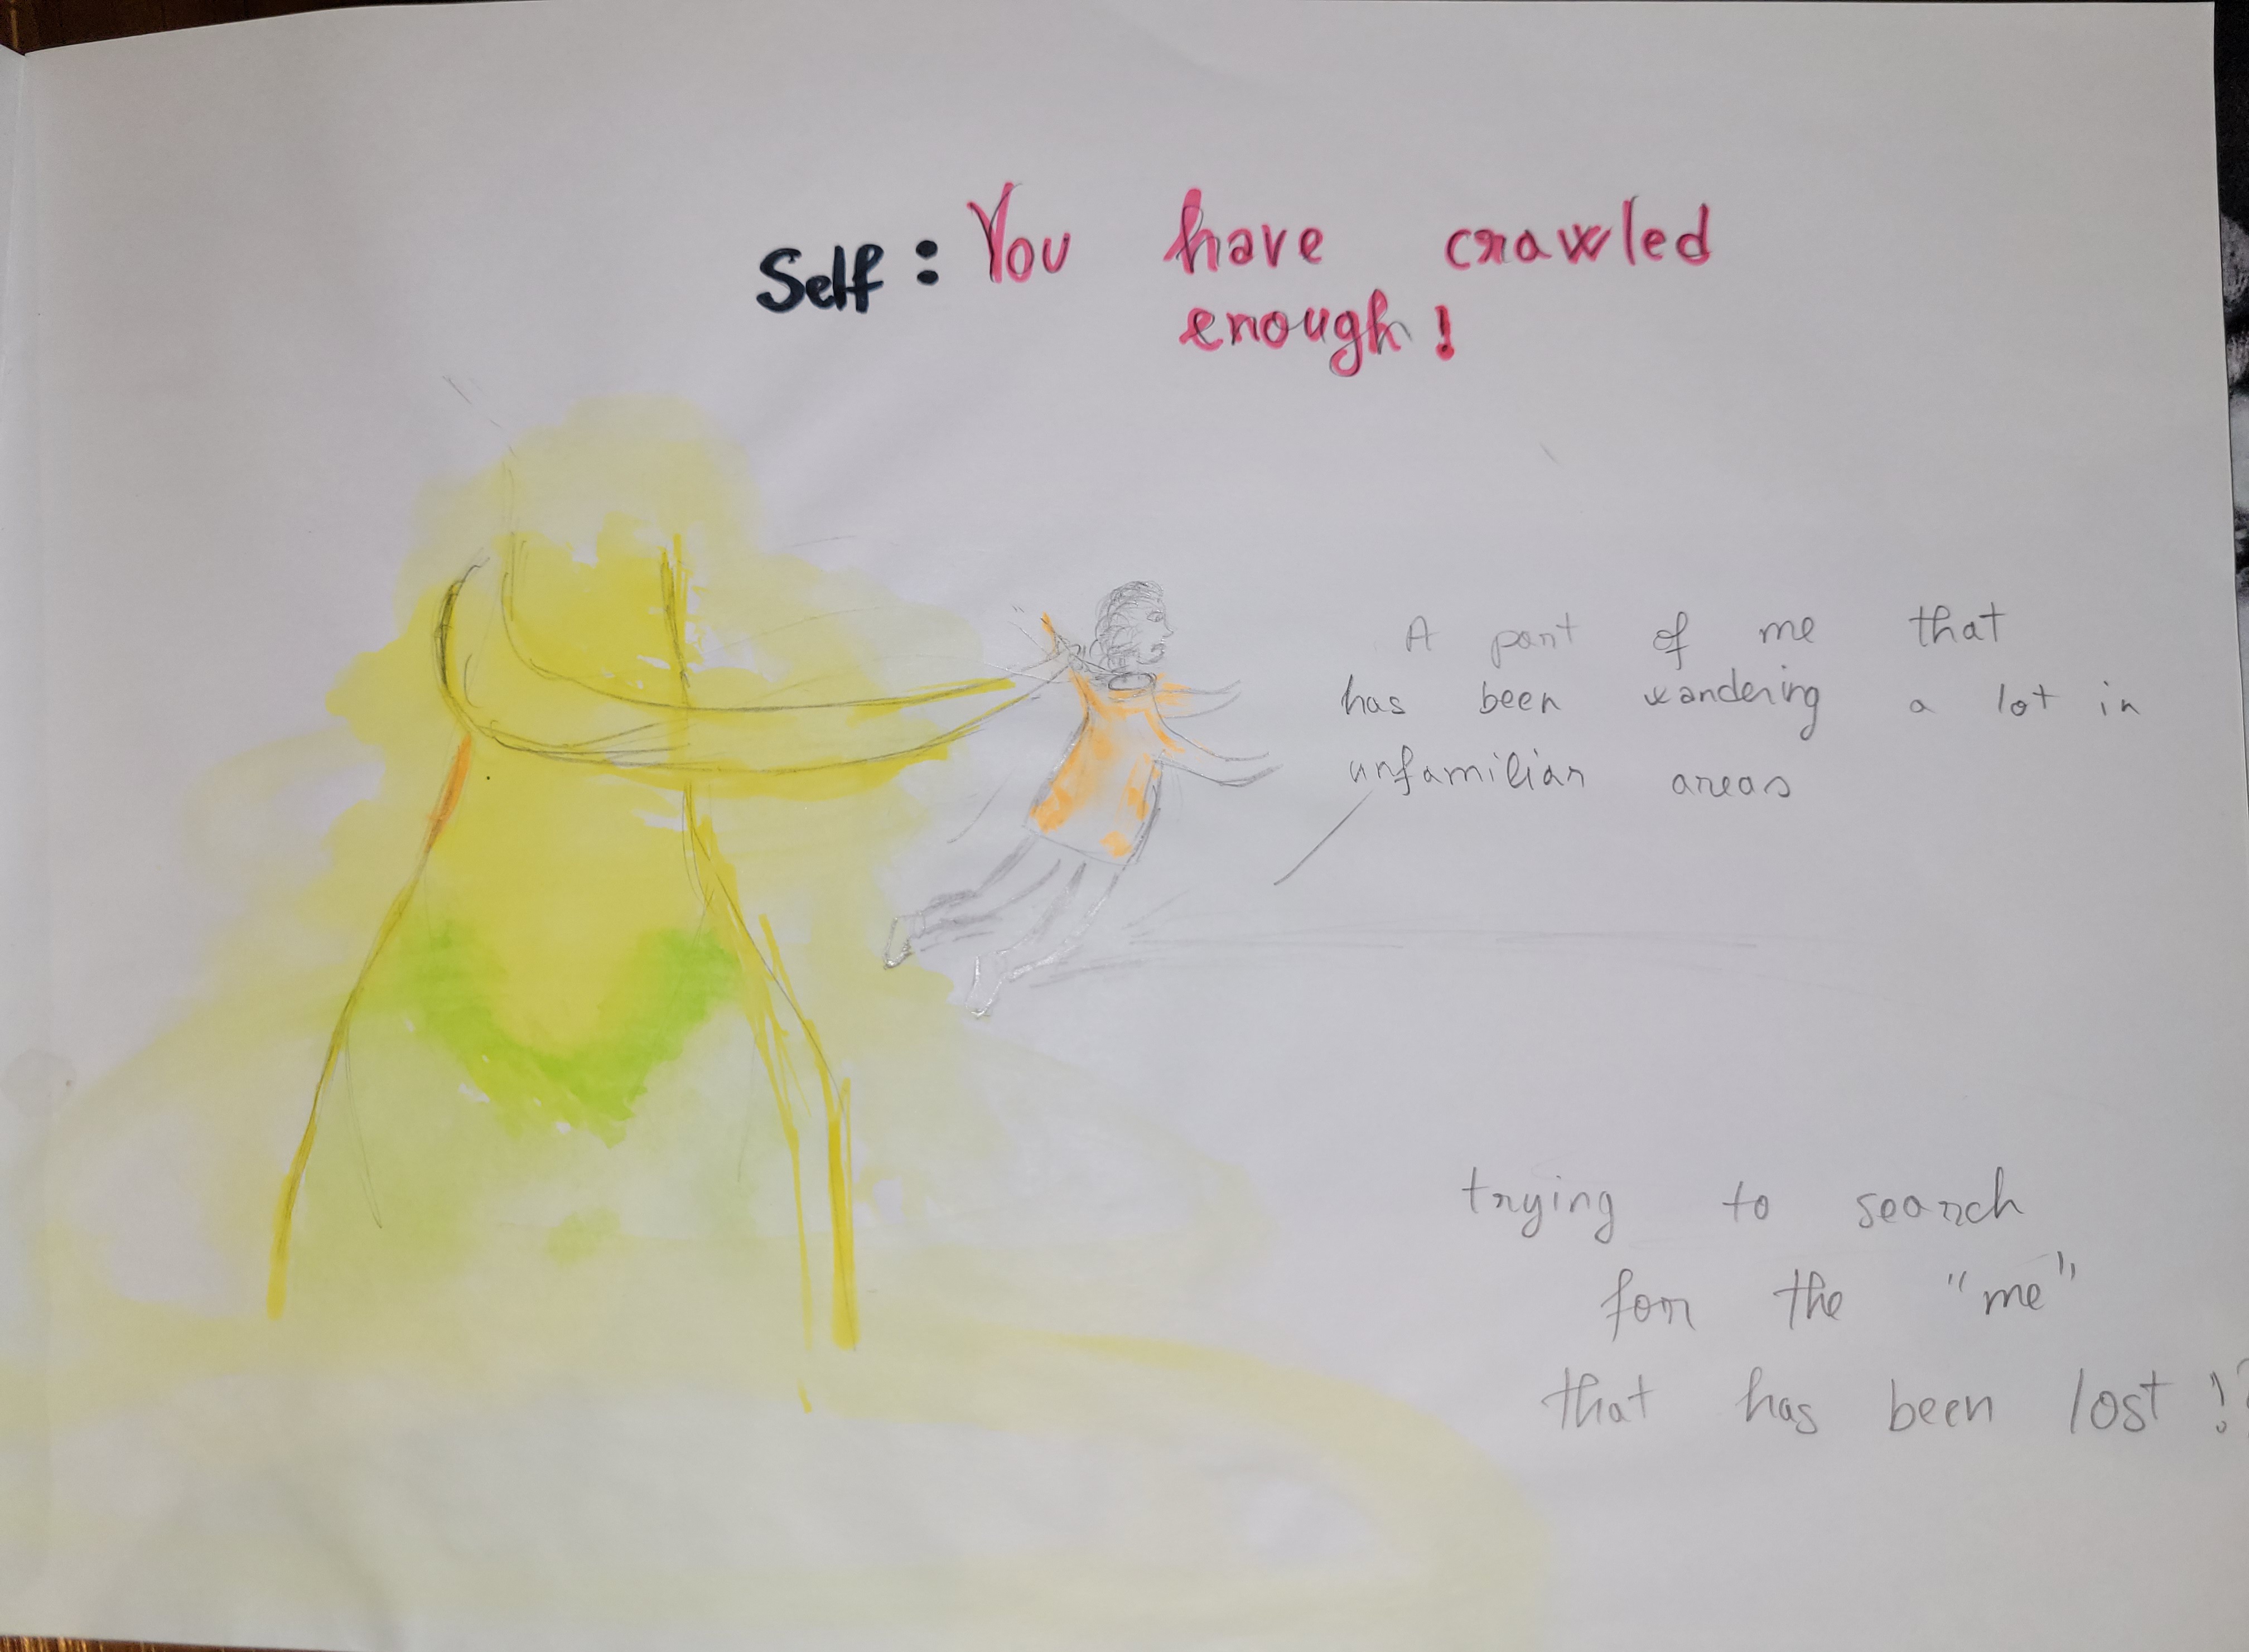 Self: You have crawled
enough!
A part of me that
has been wandering a lot in
unfamiliar areas
trying to search
for the "me"
that has been lost!?